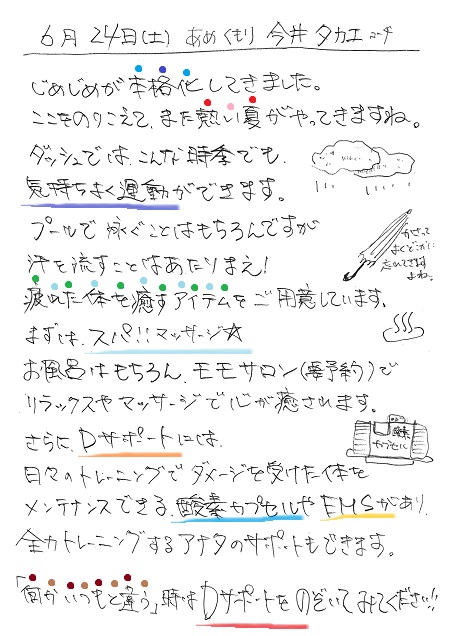 6月24日(土) あめくもり 今井タカエ コーチ
じめじめが本格化してきました。
ここをのりこえて、また熱い夏がやってきますね。
ダッシュでは、こんな時季でも、
気持ちよく運動ができます。
プールで泳ぐことはもちろんですが
汗を流すことはあたりまえ!
疲れた体を癒すアイテムをご用意しています。
まずは、スパ!!マッサージ☆
お風呂はもちろん、モモサロン(要予約)で
リラックスやマッサージで心が癒されます。
さらに、Dサポートには、
日々のトレーニングでダメージを受けた体を
メンテナンスできる、酸素カプセルやEMSがあり、
全力トレーニングするアナタのサポートもできます。
「何かいつもと違う」時はDサポートをのぞいてみてください!!
かさって
よくどこかに
忘れてきます
よね。
酸素
カプセル